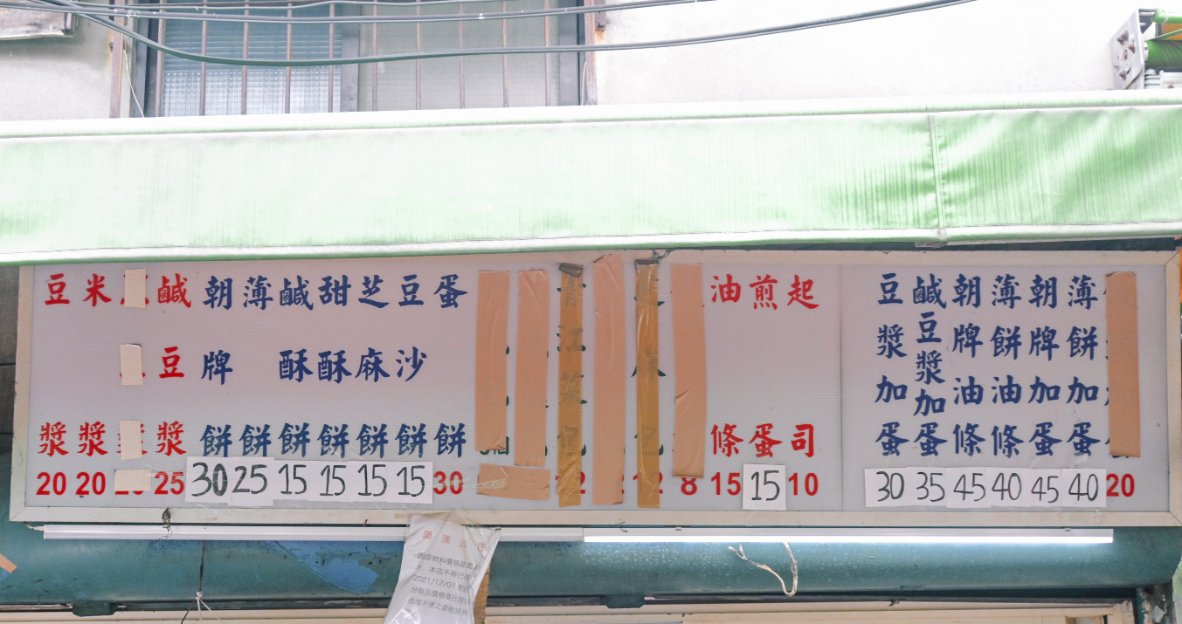 豆漿 20
米漿 20
鹹豆漿 25
朝牌餅 30
薄餅 25
鹹酥餅 15
甜酥餅 15
芝麻餅 15
豆沙餅 15
蛋餅 30
8
油條 15
煎蛋 15
起司 10
豆漿加蛋 30
鹹豆漿加蛋 35
朝牌油條 45
薄餅油條 40
朝牌加蛋 45
薄餅加蛋 40
20
原物料價格
本店不得已
2021/12/01